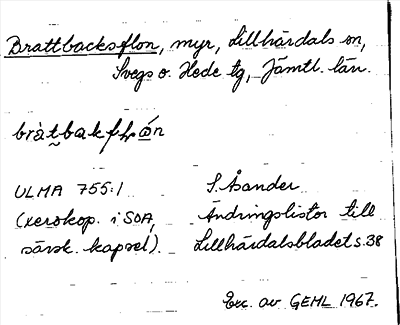 Brattbacksflon, myr, Lillhärdals sn,
Svegs o. Hede tg, Jämtl. län.
bràtbakflǿn
ULMA 755:1
(xerokop. i SOA,
särsk. kapsel).
S. Åsander
Ändringslistor till
Lillhärdalsbladet s. 38
Exc. av GEHL 1967.